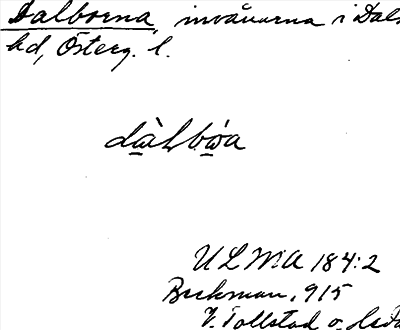 Dalborna, invånarna i Dals
hd, Österg. l.
dàLbόa
ULMA 184:2
Beckman, 915
V. Tollstad o.